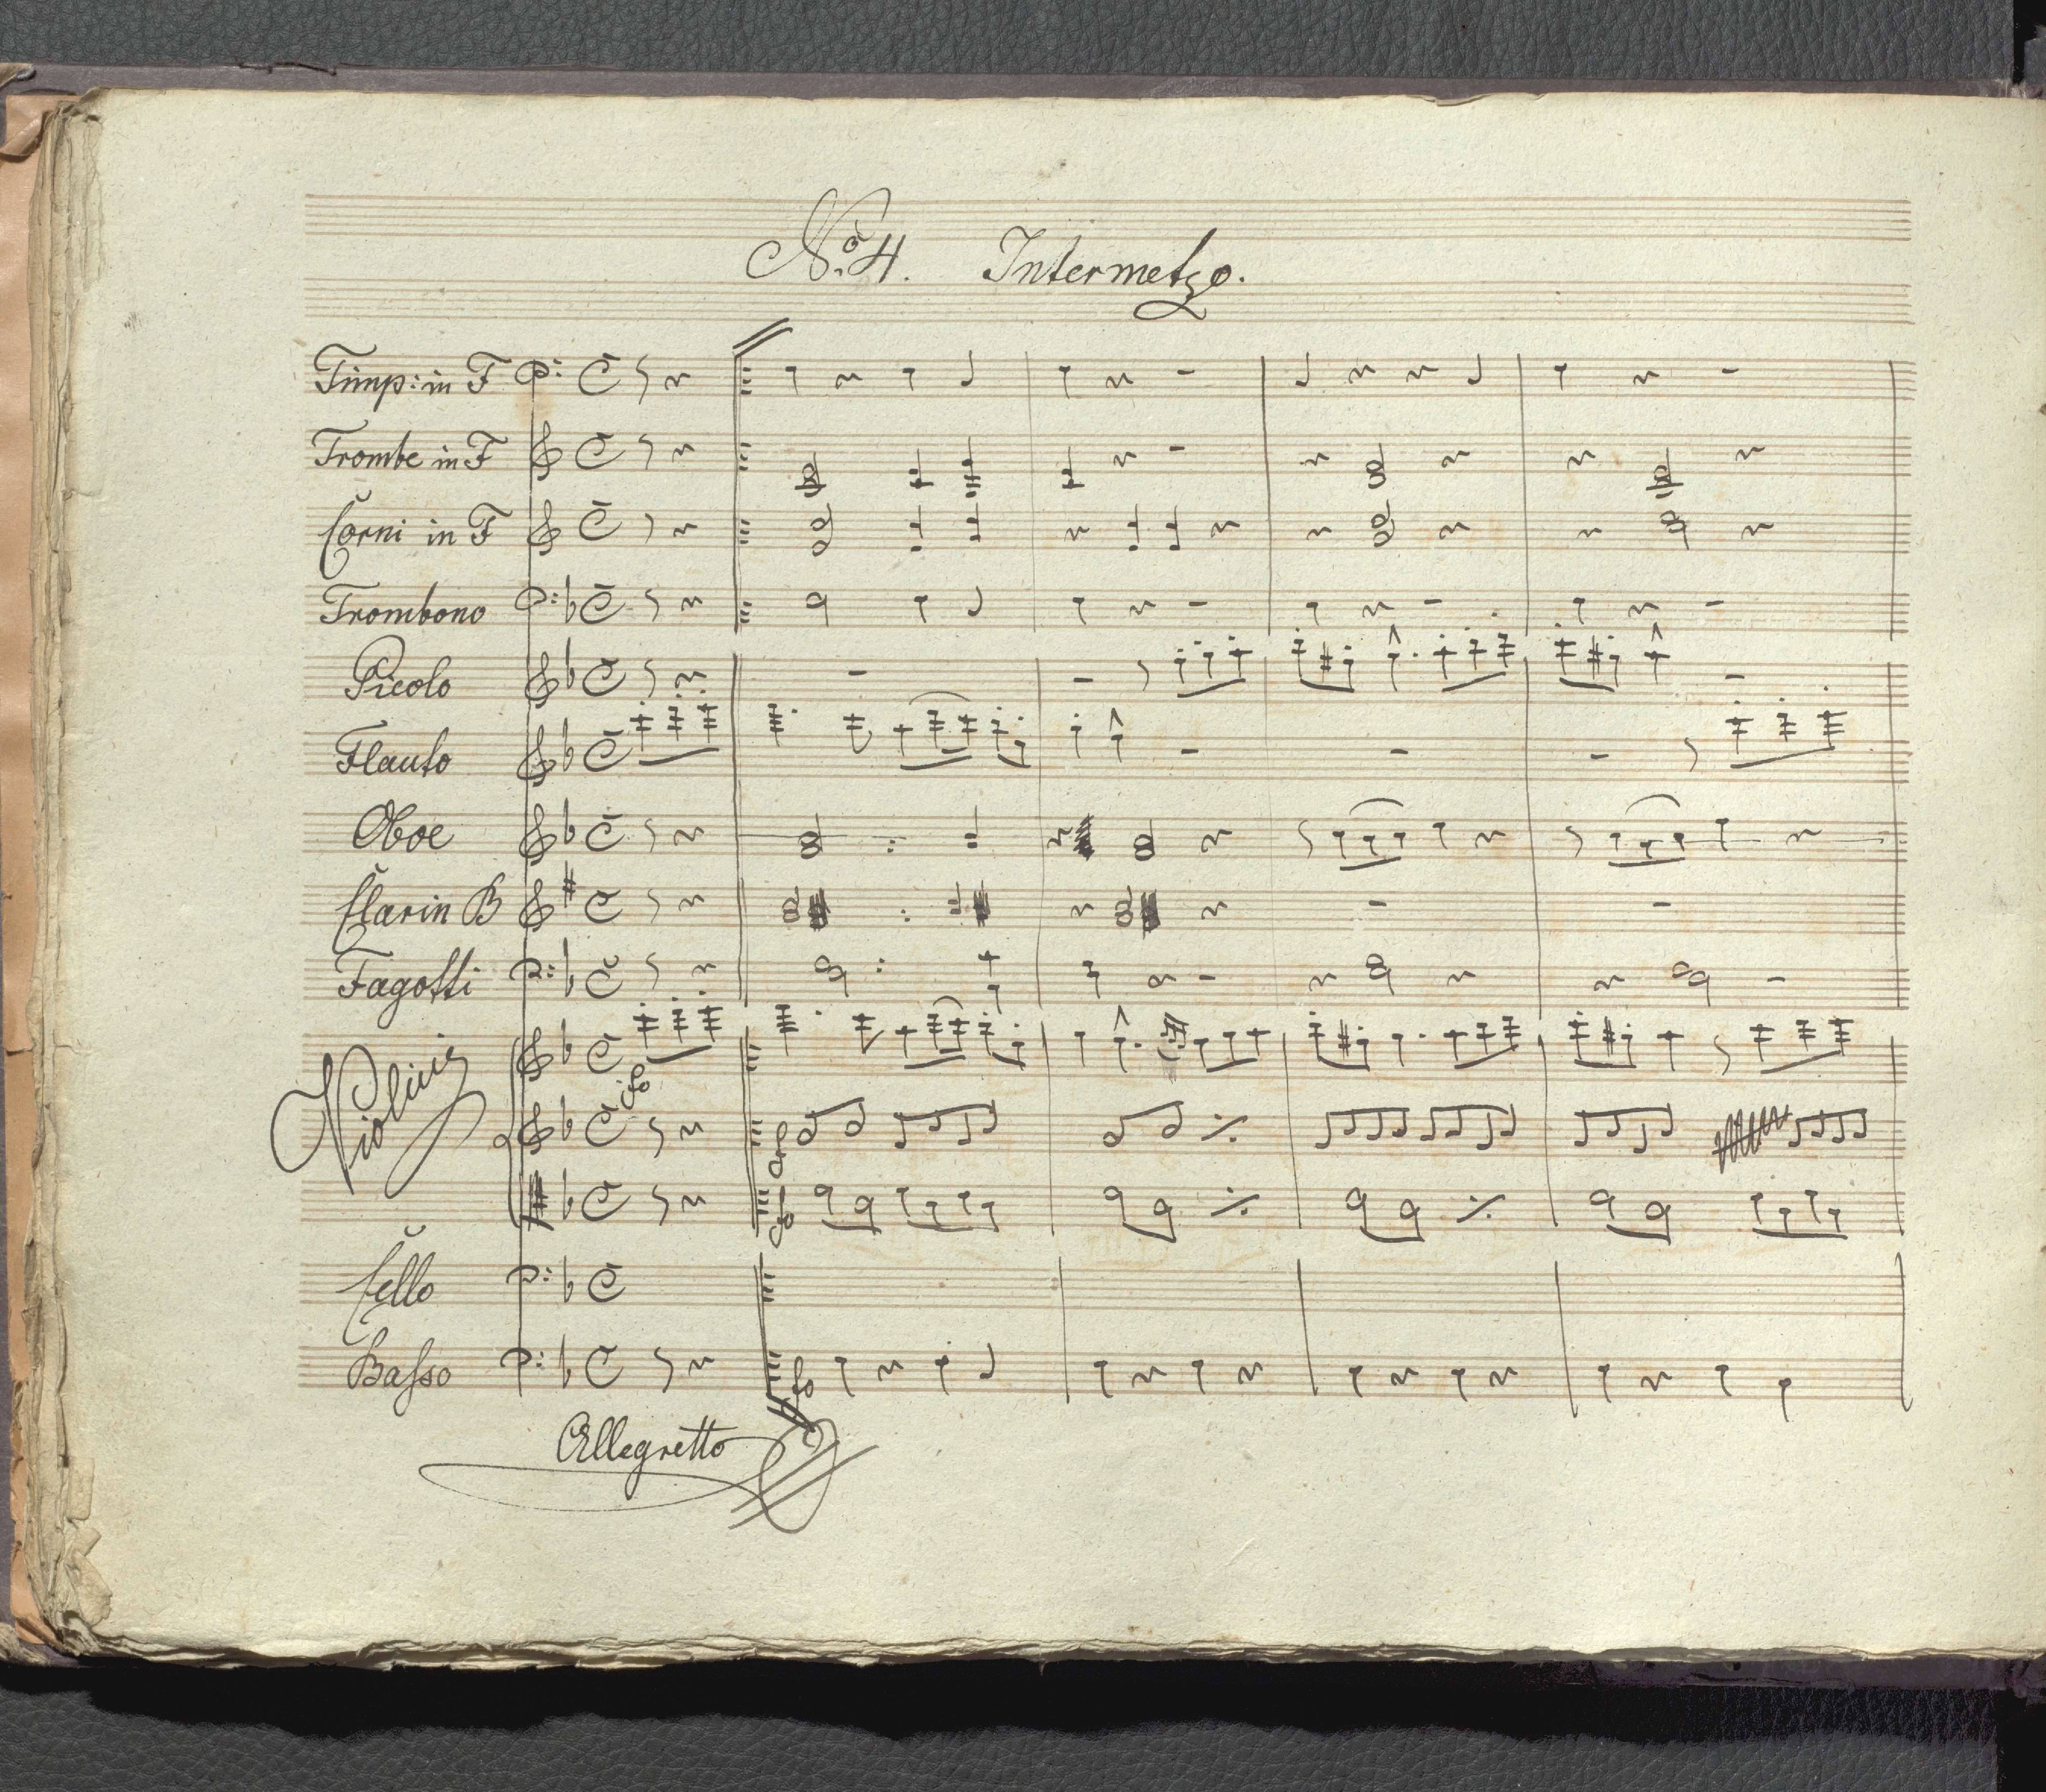 No. 4. Intermetzo.
Timp: in F
Trombe in F
Corni in F
Trombono
Picolo
Flauto
Oboe
Clar in B
Fagotti
Violini
Cello
Basso
Allegretto